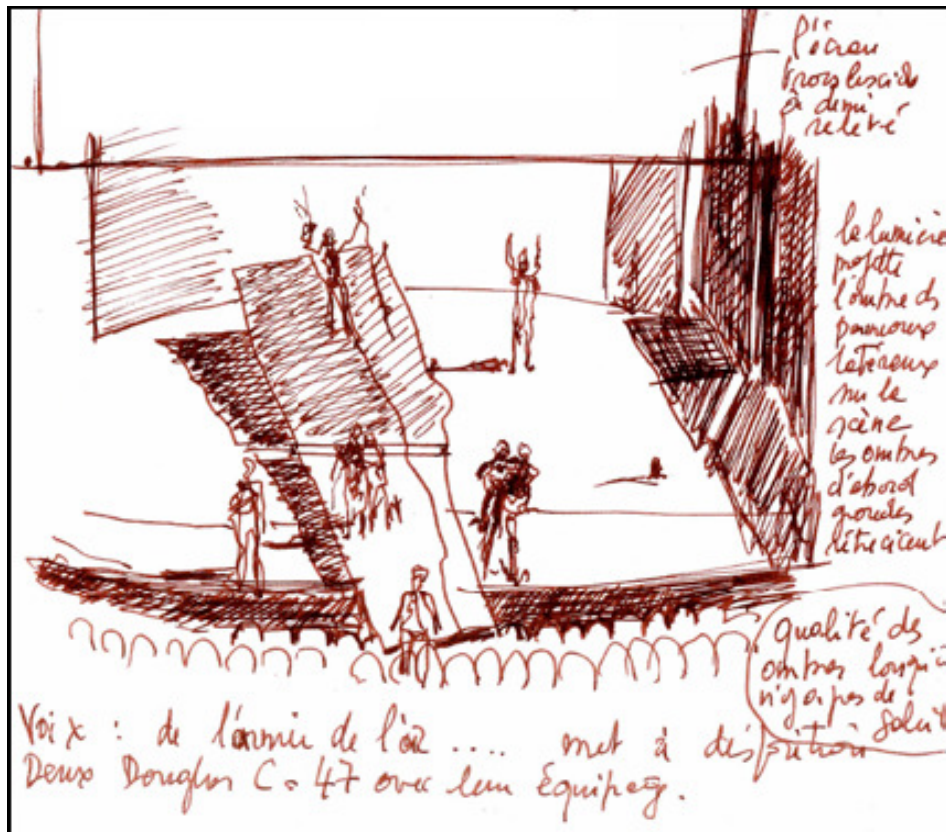 l'écran
translucide
à demi
relevé
la lumière
projette
l'ombre ds
panneaux
latéraux
sur la
scène
les ombres
d'abord
grandes
rétrécissent
qualité des
ombres lorsqu'il
n'y a pas de
soleil
Voix : de l'armée de l'air .... met à disposition
Deux Douglas C-47 avec leur équipage.